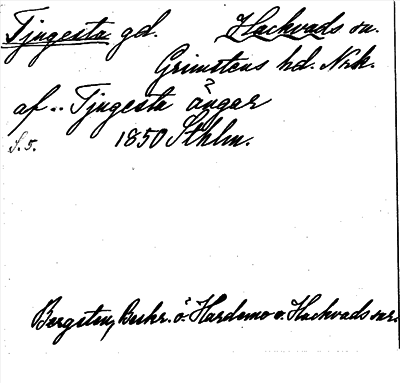 Tjugesta gd. Hackvads sn.
Grimstens hd. Nrk.
af .. Tjugesta ängar ?
s. 5. 1850 Sthlm.
Bergsten, Beskr. ö. Hardemo o. Hackvads snr.